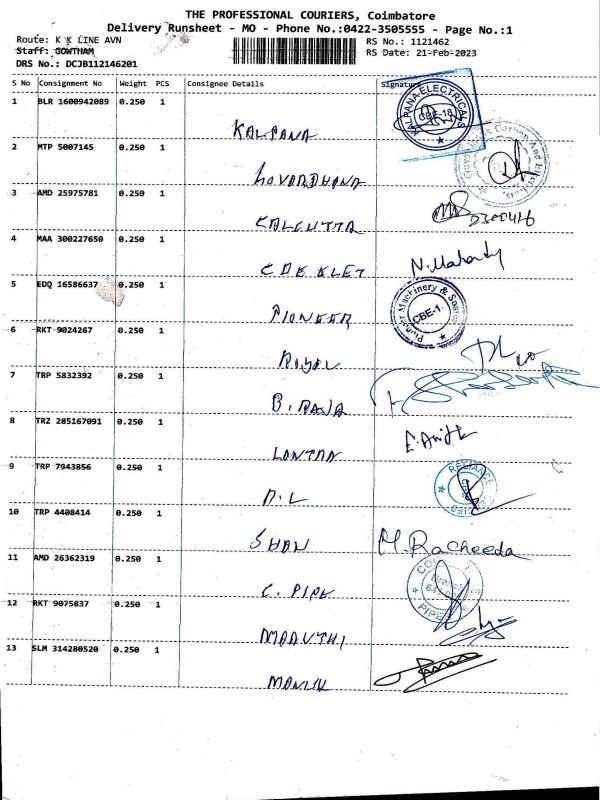 THE PROFESSIONAL COURIERS, Coimbatore
Delivery Runsheet - MO - Phone No.:0422-3505555 - Page No.:1
Route: K K LINE AVN RS No.: 1121462
Staff: GOWTHAM RS Date: 21-Feb-2023
DRS No.: DCJB112146201
S No Consignment No Weight PCS Consignee Details Signature
1 BLR 1600942089 0.250 1
KALPANA
KALPANA ELECTRICALS CBE-18
2 MTP 5007145 0.250 1
GOVARDHANA
3 AMD 25975781 0.250 1
CALCUTTA
4 MAA 300227650 0.250 1
N. Mahanty
5 EDQ 16586637 0.250 1
PIONEER
Pioneer Machinery & Stores CBE-1.
6 RKT 9024267 0.250 1
ROYAL
7 TRP 5832392 0.250 1
B. RAJA
8 TRZ 285167091 0.250 1
9 TRP 7943856 0.250 1
RELIANCE
10 TRP 4408414 0.250 1
SHAN M. Racheeda
11 AMD 26362319 0.250 1
C. PIPE
12 RKT 9075837 0.250 1
MARUTHI
13 SLM 314280520 0.250 1